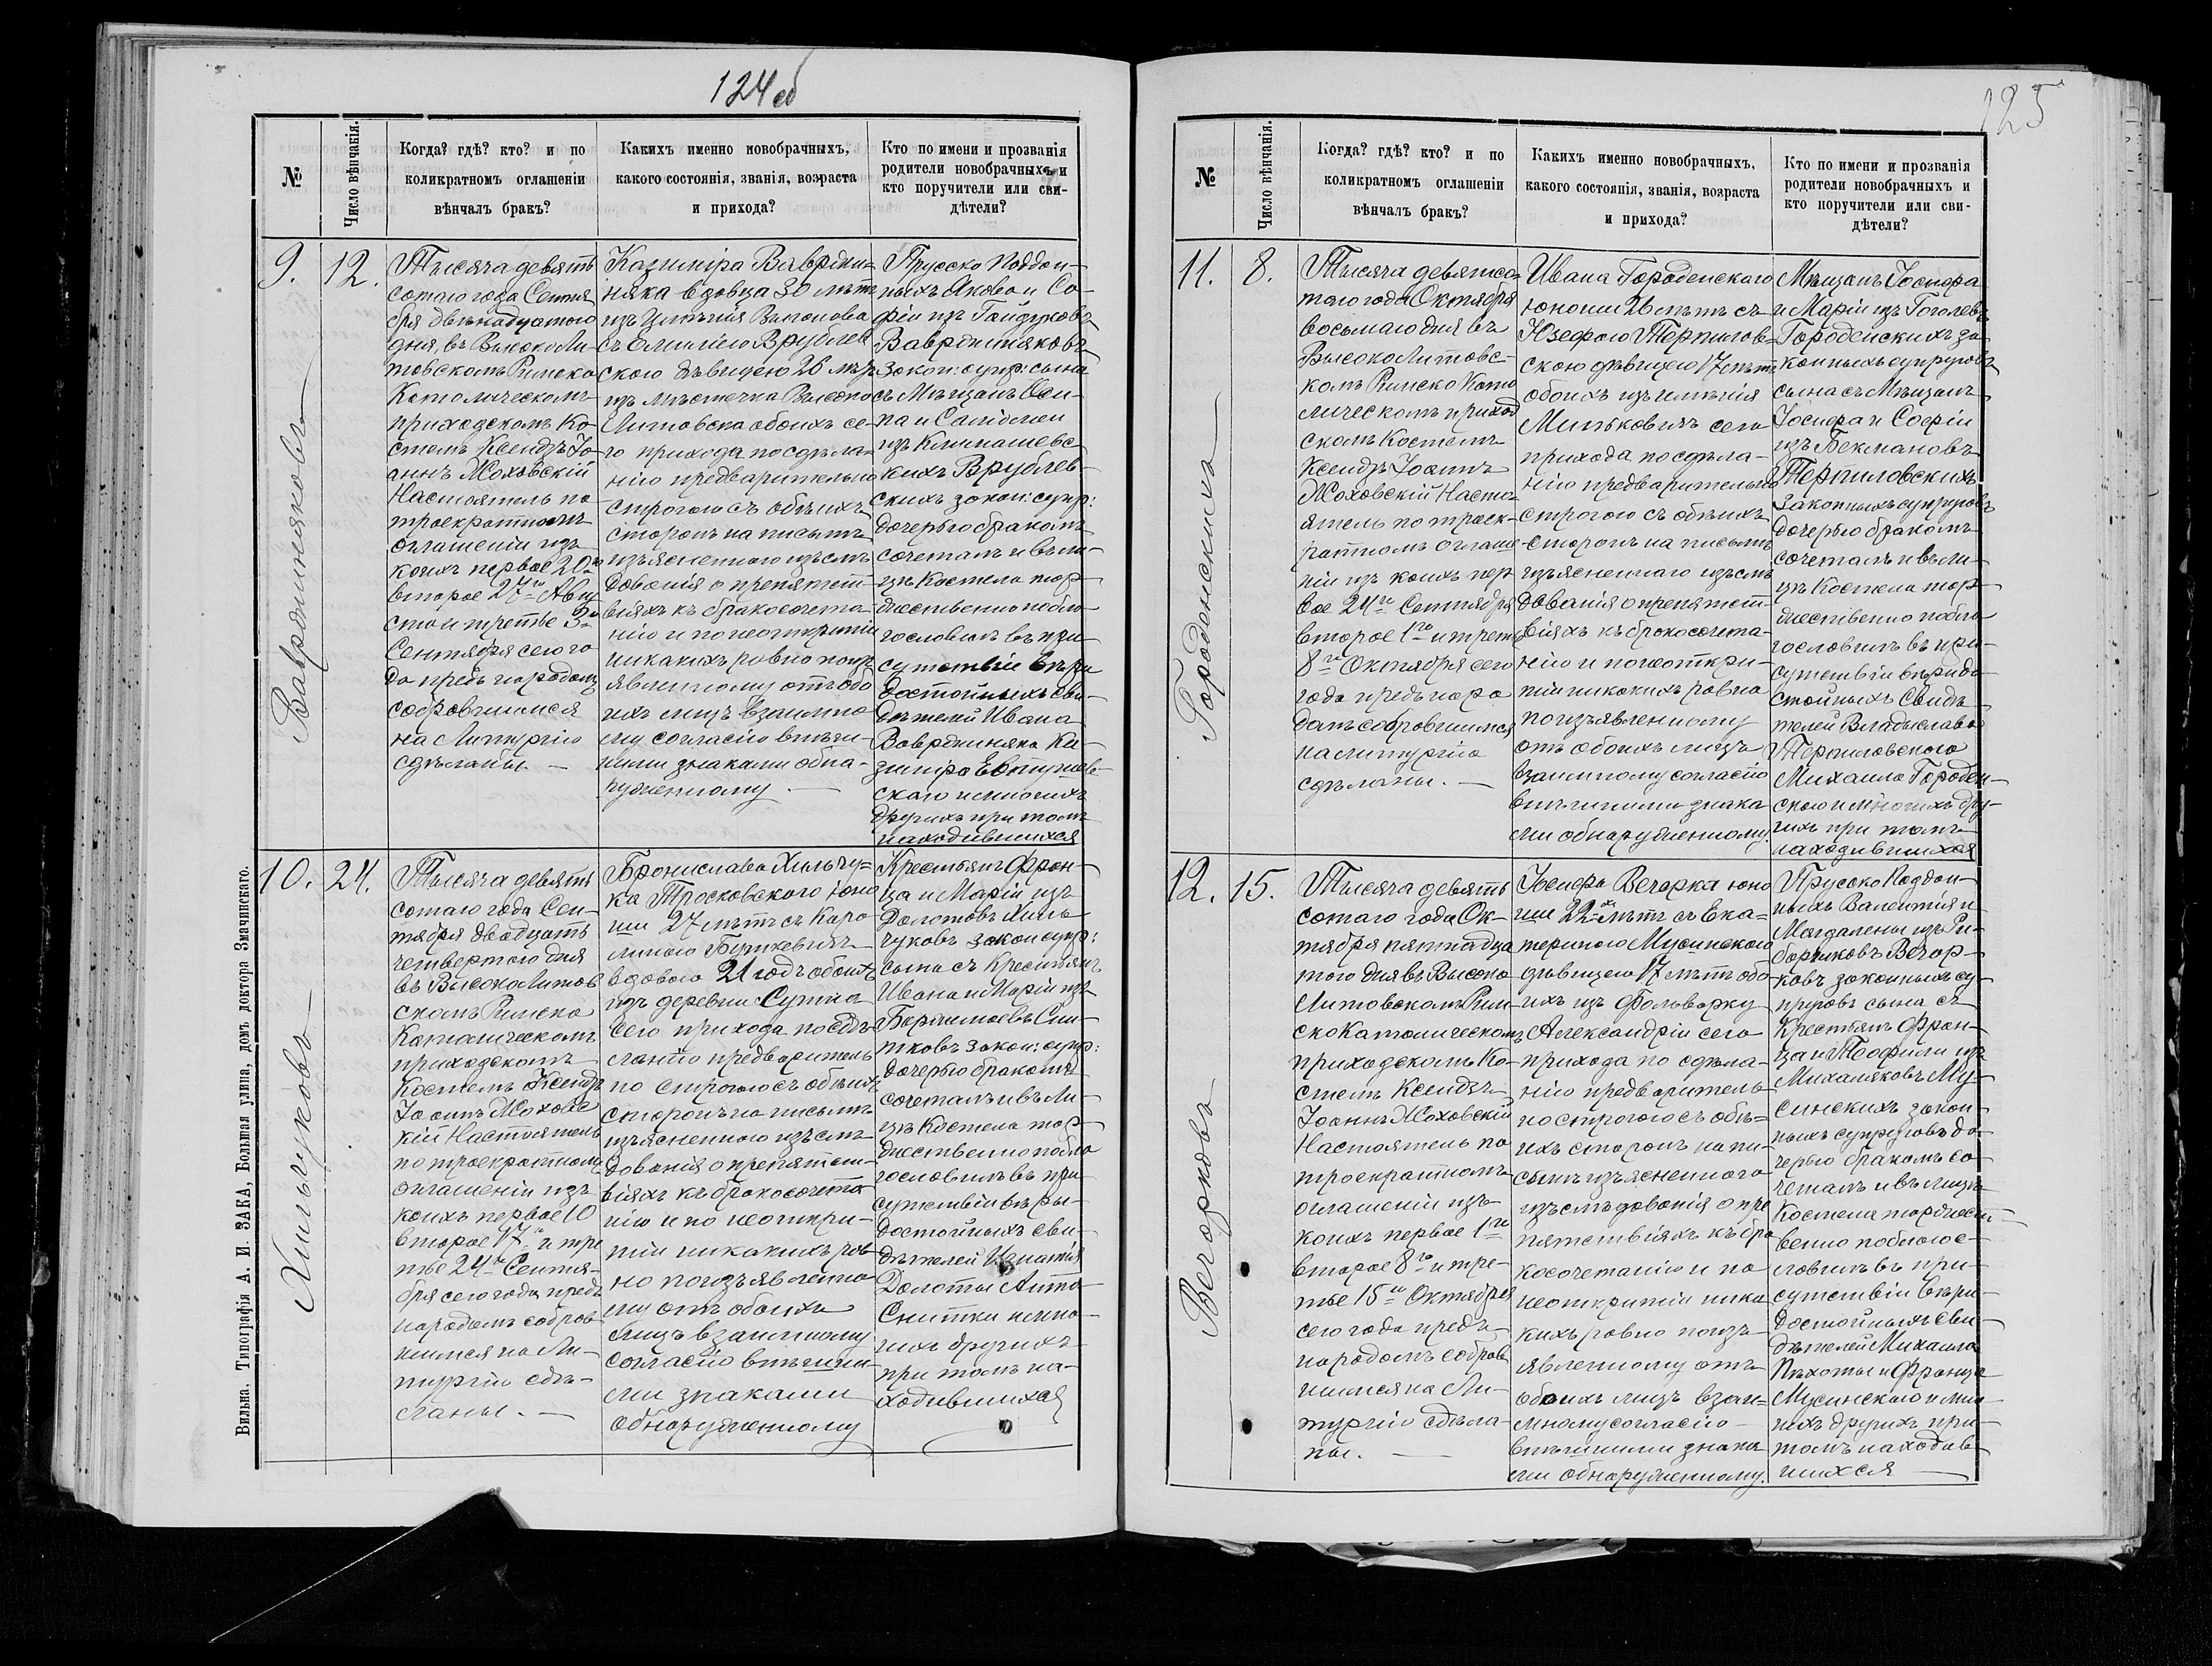 124об
№
Число вѣнчанія.
Когда? гдѣ? кто? и по
коликратномъ оглашеніи
вѣнчалъ бракъ?
Какихъ именно новобрачныхъ,
какого состоянія, званія, возраста
и прихода?
Кто по имени и прозванія
родители новобрачныхъ и
кто поручители или сви-
дѣтели?
9.
12.
Тысяча девять
сотаго года Сентя
бря двѣнадцатого
дня, въ Высоко Ли-
товскомъ Римско
Католическомъ
приходскомъ Ко-
стелѣ Ксендзъ Іо-
аннъ Жоховскій
Настоятель по
троекратномъ
оглашеніи изъ
коихъ первое 20го
второе 27го Авгу
ста и третье 3го
Сентября сего го
да предъ народомъ
собравшимся
на Литургію
сдѣланы. —
Казиміра Ваврдки-
няка вдовца 30 лѣтъ
изъ имѣнія
съ Емиліею Врублев
скою дѣвицею 26 лѣтъ
изъ мѣстечка Высоко
Литовска обоихъ се-
го прихода по сдѣла-
нію предварительно
строгою съ обѣихъ
сторонъ на письмѣ
изъясненнаго изслѣ
дованія о препятст-
віяхъ къ бракосочета
нію и по неоткрытіи
никакихъ равно поизъ
явленному отъ обо
ихъ лицъ взаимно
му согласію внѣшн-
ними знаками обна-
руженному. —
Прусско поддан-
ныхъ Якова и Со-
фіи изъ Гайдуковъ
Ваврдкиняковъ
закон: супр: сына
съ Мѣщанъ Оси-
па и Саломеи
изъ Климашевс-
кихъ Врублев-
скихъ закон: супр:
дочерью бракомъ
сочеталъ и въ ли-
цѣ Костела тор-
жественно побла-
гословилъ въ при
сутствіи вѣро
достойныхъ сви-
дѣтелей Ивана
Ваврдкиняка Ка-
зиміра
скаго и многихъ
другихъ при томъ
находившихся
Ваврдкиняковъ
10.
24.
Тысяча девять
сотаго года Сен-
тября двадцать
четвертого дня
въ Высоко Литов
скомъ Римско
Католическомъ
приходскомъ
Костелѣ Ксендзъ
Іоаннъ Жоховс
кій Настоятель
по троекратномъ
оглашеніи изъ
коихъ первое 10
второе 17го и тре
тье 24го Сентя-
бря сего года предъ
народомъ собрав
шимся на Ли-
тургію сдѣ-
ланы. —
Бронислава Хильчу-
ка Тросковского юно
ши 27 лѣтъ съ Каро
линою Бушкевичъ
вдовою 21 годъ обоихъ
изъ деревни Сутна
сего прихода по сдѣ
ланію предваритель
но строгою съ обѣихъ
сторонъ на письмѣ
изъясненного изслѣ-
дованія о препятст-
віяхъ къ бракосочета
нію и по неоткры-
тіи никакихъ рав
но поизъявленно
му отъ обоихъ
лицъ взаимному
согласію внѣшни-
ми знаками
обнаруженному
Крестьянъ Фран-
ца и Маріи изъ
Долотовъ Хиль
чуковъ закон супр:
сына съ Крестьянъ
Ивана и Маріи изъ
Снит
ковъ закон: супр:
дочерью бракомъ
сочеталъ и въ ли-
цѣ Костела тор-
жественно побла
гословилъ въ при
сутствіи вѣро-
достойныхъ сви-
дѣтелей Игнатія
Долоты Анто-
Снитки и мно-
гихъ другихъ
при томъ на-
ходившихся
Хильчуковъ
Вильна. Типографія А. И. ЗАКА, Большая улица, домъ доктора Змачинскаго.
125
№
Число вѣнчанія.
Когда? гдѣ? кто? и по
коликратномъ оглашеніи
вѣнчалъ бракъ?
Какихъ именно новобрачныхъ,
какого состоянія, званія, возраста
и прихода?
Кто по имени и прозванія
родители новобрачныхъ и
кто поручители или сви-
дѣтели?
11.
8.
Тысяча девятсо
таго года Октября
восьмаго дня въ
Высоко Литовс-
комъ Римско Като
лическомъ приход
скомъ Костелѣ
Ксендзъ Іоаннъ
Жоховскій Насто-
ятель по троек-
ратномъ оглаше-
ніи изъ коихъ пер
вое 24го Сентября
второе 1го и третье
8го Октября сего
года предъ наро
домъ собравшимся
на литургію
сдѣланы. —
Ивана Городенскаго
юноши 26 лѣтъ съ
Юзефою Терпилов-
скою дѣвицею 17 лѣтъ
обоихъ изъ имѣнія
Миньковичъ сего
прихода по сдѣла-
нію предварительно
строгою съ обѣихъ
сторонъ на письмѣ
изъясненнаго изслѣ
дованія о препятст
віяхъ къ бракосочета-
нію и по неоткры-
тіи никакихъ равно
поизъявленному
отъ обоихъ лицъ
взаимному согласію
внѣшними знака
ми обнаруженному.
Мѣщанъ Іосифа
и Маріи изъ Гоголевъ
Городенскихъ за-
конныхъ супруговъ
сына съ Мѣщанъ
Іосифа и Софіи
изъ Бекмановъ
Терпиловскихъ
законныхъ супруговъ
дочерью бракомъ
сочеталъ и въ ли-
цѣ Костела тор-
жественно побла-
гословилъ въ при-
сутствіи вѣродо
стойныхъ Свидѣ-
телей Владыслава
Терпиловского
Михаила Городен-
скаго и многихъ дру-
гихъ при томъ
находившихся
Городенскихъ
12.
15.
Тысяча девять
сотаго года Ок-
тября пятнадца
того дня въ Высоко
Литовскомъ Рим-
ско Католическомъ
приходскомъ Ко-
стелѣ Ксендзъ
Іоаннъ Жоховскій
Настоятель по
троекратномъ
оглашеніи изъ
коихъ первое 1го
второе 8го и тре-
тье 15го Октября
сего года предъ
народомъ собрав
шимся на Ли-
тургію сдѣла-
ны. —
Іосифа Вечорка юно
ши 22хъ лѣтъ съ Ека-
териною Мусинскою
дѣвицею 17 лѣтъ обо
ихъ изъ фольварку
Александріи сего
прихода по сдѣла-
нію предваритель
но строгою съ обѣ-
ихъ сторонъ на пи-
сьмѣ изъясненного
изслѣдованія о пре
пятствіяхъ къ бра
косочетанію и по
неоткрытіи ника
кихъ равно поизъ-
явленному отъ
обоихъ лицъ взаи-
мному согласію
внѣшними знака
ми обнаруженному.
Прусско Поддан-
ныхъ Валентія и
Магдалены изъ Ри-
бариковъ Вечор-
ковъ законныхъ су-
пруговъ сына съ
Крестьянъ Фран-
ца и Теофили изъ
Михаляковъ Му-
синскихъ закон-
ныхъ супруговъ до-
черью бракомъ со-
четалъ и въ лицѣ
Костела торжест-
венно поблагос-
ловилъ въ при-
сутствіи вѣро-
достойныхъ сви-
дѣтелей Михаила
Пѣхоты и Франца
Мусинскаго и мно-
гихъ другихъ при
томъ находив-
шихся —
Вечорковъ